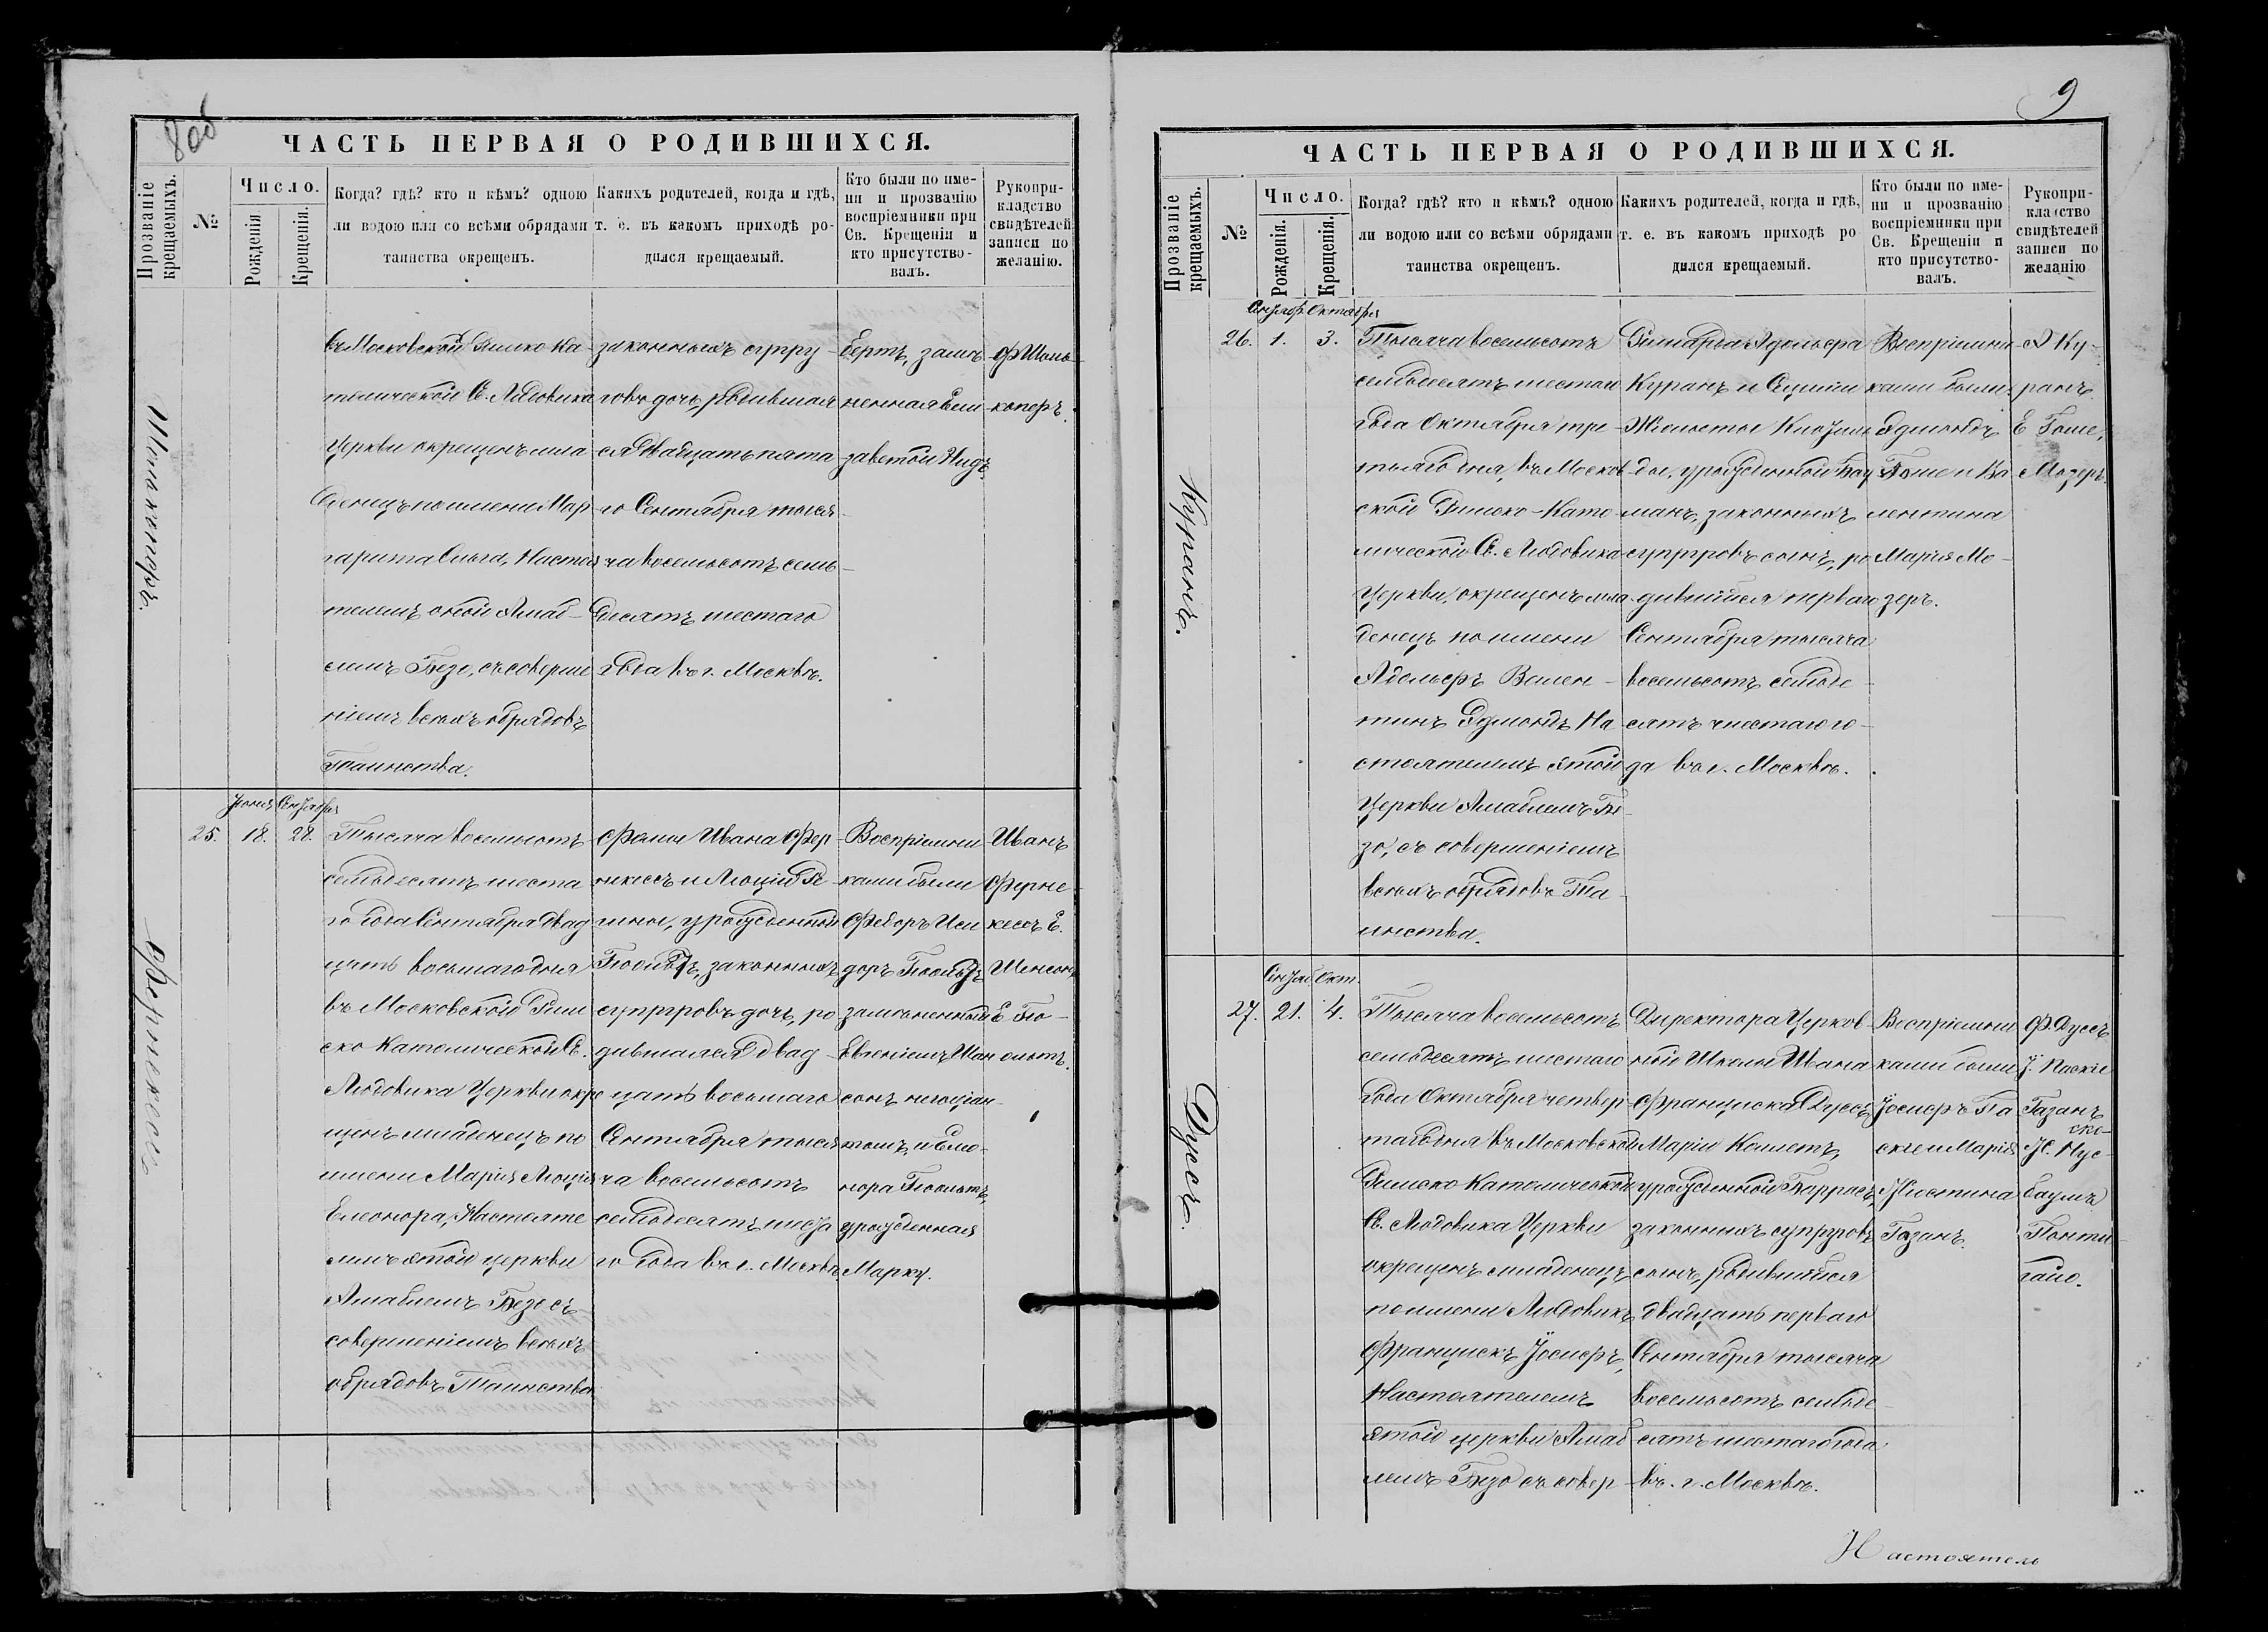 8 об
ЧАСТЬ ПЕРВАЯ О РОДИВШИХСЯ.
Прозваніе крещаемыхъ.
№
Число.
Рожденія
Крещенія.
Когда? гдѣ? кто и кѣмъ? одною
ли водою или со всѣми обрядами
таинства окрещенъ.
Какихъ родителей, когда и гдѣ,
т. е. въ какомъ приходѣ ро-
дился крещаемый.
Кто были по име-
ни и прозванію
воспріемники при
Св. Крещеніи и
кто присутство-
валъ.
Рукопри-
кладство
свидѣтелей
записи по
желанію.
въ Московской Римско Ка-
толической Св. Людовика
Церкви окрещенъ мла
денецъ по имени Мар
гарита Ольга, Настоя
телемъ оной Амаб-
лемъ Безо, съ соверше
ніемъ всѣхъ обрядовъ
Таинства.
законныхъ супру
говъ дочь, родившая
ся двадцать пята
го Сентября тыся
ча восемьсотъ семь
десятъ шестаго
года въ г. Москвѣ.
бертъ, замѣ
ненная Ели
заветой
копфъ.
Іюня Сентября
25. 18. 28.
Фернкесъ
Тысяча восемьсотъ
семьдесятъ шеста
го года Сентября двад
цать восьмаго дня
въ Московской Рим
ско Католической Св.
Людовика Церкви окре
щенъ младенецъ по
имени Марія Люція
Елеонора, Настояте
лемъ этой церкви
Амаблемъ Безо съ
совершеніемъ всѣхъ
обрядовъ Таинства
Ѳомы Ивана Фер
нкесъ и Люціи Ре
гины, урожденной
законныхъ
супруговъ дочь, ро
дившаяся двад
цать восьмаго
Сентября тыся
ча восемьсотъ
семьдесятъ шеста
го года въ г. Москвѣ
Воспріемни
ками были
Федоръ Иси
доръ
замѣненный
Евгеніемъ Шан
сонъ негоціан
томъ, и Елео-
нора
урожденная
Марку.
Иванъ
Ферне
кесъ Е.
9
ЧАСТЬ ПЕРВАЯ О РОДИВШИХСЯ.
Прозваніе крещаемыхъ.
№
Число.
Рожденія.
Крещенія.
Когда? гдѣ? кто и кѣмъ? одною
ли водою или со всѣми обрядами
таинства окрещенъ.
Какихъ родителей, когда и гдѣ,
т. е. въ какомъ приходѣ ро
дился крещаемый.
Кто были по име-
ни и прозванію
воспріемники при
Св. Крещеніи и
кто присутство-
валъ.
Рукопри-
кладство
свидѣтелей
записи по
желанію
Сентяб. Октября
26. 1. 3.
Куранъ.
Тысяча восемьсотъ
семьдесятъ шестаго
года Октября тре
тьяго дня, въ Москов
ской Римско-Като
лической Св. Людовика
Церкви, окрещенъ мла
денецъ по имени
Адольфъ Вален-
тинъ Эдмондъ На
стоятелемъ этой
Церкви Амаблемъ Бе
зо, съ совершеніемъ
всѣхъ обрядовъ Та
инства.
Адольфа
Куранъ и
урожденной
законныхъ
супруговъ сынъ, ро
дившійся перваго
Сентября тысяча
восемьсотъ семьде
сятъ шестаго го-
да въ г. Москвѣ.
Воспріемни
ками были
Эдмондъ
Гоше и Ва
лентина
Марія Мо-
зеръ.
А Ку-
ранъ
Е Гоше,
Мозеръ.
Сентяб Окт.
27. 21. 4.
Дуссъ.
Тысяча восемьсотъ
семьдесятъ шестаго
года Октября четвер
таго дня въ Московской
Римско Католической
Св. Людовика Церкви
окрещенъ младенецъ
по имени Людовикъ
Францискъ Іосифъ,
Настоятелемъ
этой церкви Амаб
лемъ Безо съ совер
Директора Церков
ной Школы Ивана
Франциска Дуссъ
Маріи Коллетъ,
урожденной Баррасъ,
законныхъ супруговъ
сынъ, родившійся
двадцать перваго
Сентября тысяча
восемьсотъ семьде
сятъ шестаго года
въ г. Москвѣ.
Воспріемни
ками были
Іосифъ Па
скіе и Марія
Жюстина
Газанъ.
Ф. Дуссъ
J. Паскіе
Газанъ
Ж. Нус-
баумъ
Понти
Настоятель